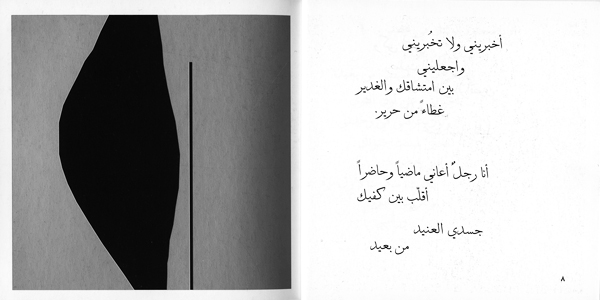 أخبريني ولا تخُبريني
واجعليني
بين امتشاقك والغدير
غطاءً من حرير.
أنا رجلٌ أعاني ماضياً وحاضراً
أقلّب بين كفيك
جسدي العنيد
من بعيد
٨